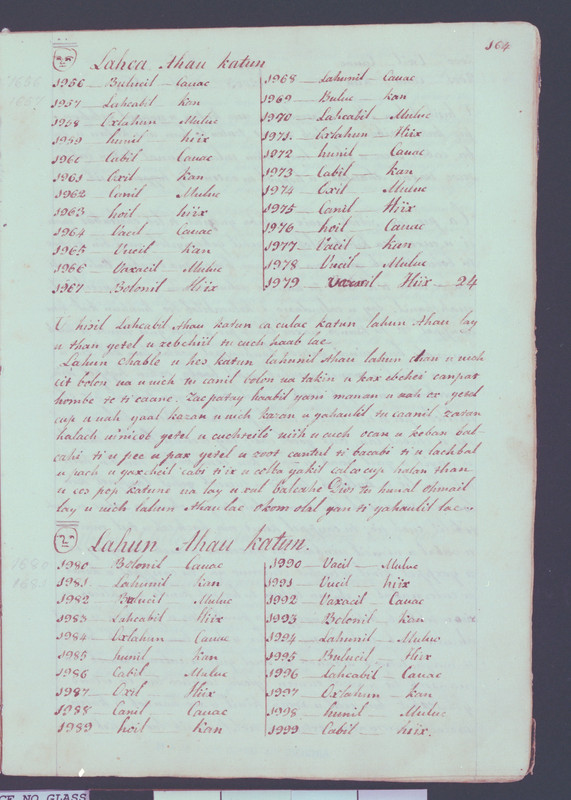 164
Lahca Ahau katun
1956 Bulucil Cauac
1957 Lahcabil Kan
1958 Oxlahun Muluc
1959 hunil hiix
1960 Cabil Cauac
1961 Oxil Kan
1962 Canil Muluc
1963 hoil hiix
1964 Vacil Cauac
1965 Vucil Kan
1966 Vaxacil Muluc
1967 Bolonil Hiix
1968 Lahunil Cauac
1969 Buluc Kan
1970 Lahcabil Muluc
1971 Oxlahun Hiix
1972 hunil Cauac
1973 Cabil Kan
1974 Oxil Muluc
1975 Canil Hiix
1976 hoil Cauac
1977 Vacil Kan
1978 Vucil Muluc
1979 Hiix 24
U hisil Lahcabil Ahau katun ca culac katun lahun Ahau lay
u than yetel u uch haab lac
Lahun Chable u hes katun Lahunil Ahau lahun chan u uich
cit bolon na u uich tu canil bolon na takin u pax ebchei canpax
hombe ti caane. haabil yani manan u uah ox
cup u uah yaal kazan u uich kazan u yahaulil tu caanil
halach uinicob yetel u u uich u cuch ocan u koban bal
cahi ti u pec u pax yetel u cantul ti bacabi ti u lachbal
u pach u cabi ti ix u halan than
u ces pop katune na lay u xul Balcahe Dios tu hunal
lay u uich lahun Ahau lac okom olal yan ti yahaulil lac
Lahun Ahau katun.
1980 Bolonil Cauac
1981 Lahunil Kan
1982 Bulucil Muluc
1983 Lahcabil Hiix
1984 Oxlahun Cauac
1985 hunil Kan
1986 Cabil Muluc
1987 Oxil Hiix
1988 Canil Cauac
1989 hoil Kan
1990 Vacil Muluc
1991 Vucil hiix
1992 Vaxacil Cauac
1993 Bolonil Kan
1994 Lahunil Muluc
1995 Bulucil Hiix
1996 Lahcabil Cauac
1997 Oxlahun Kan
1998 hunil Muluc
1999 Cabil hiix.
CE NO GLASS